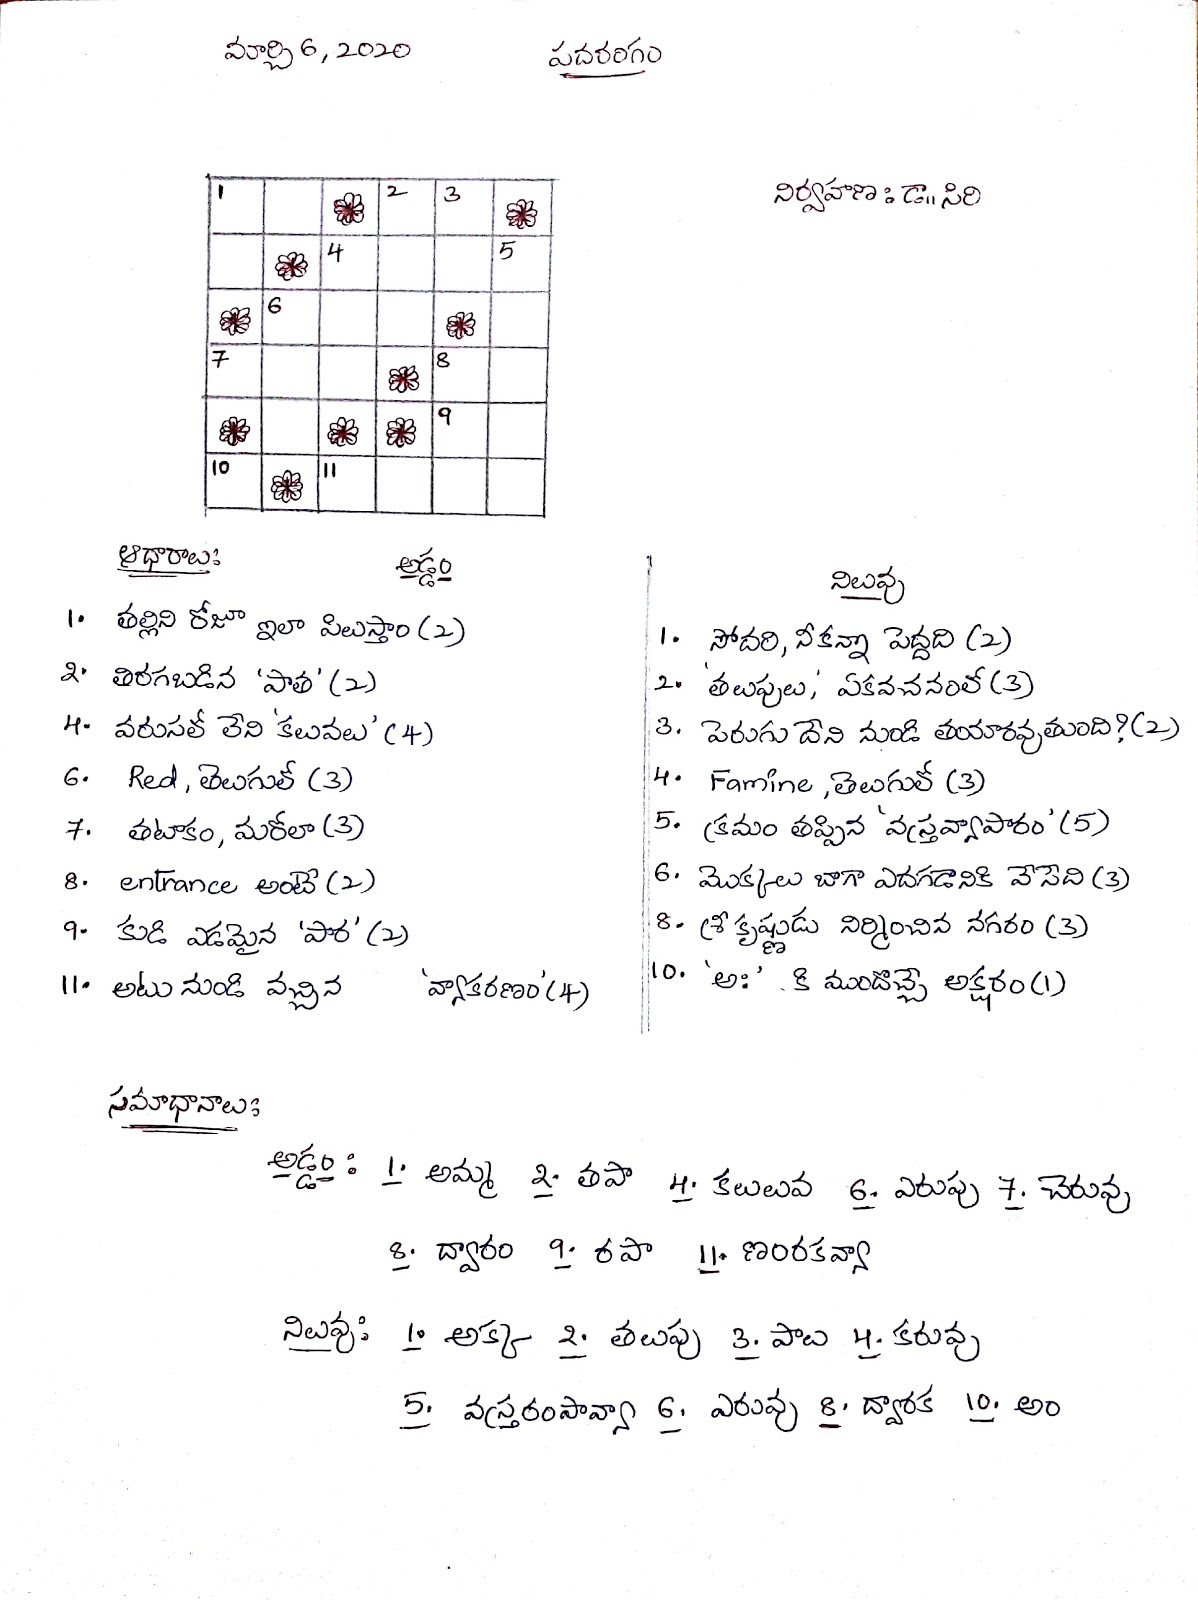 మార్చి 6, 2020 పదరంగం
నిర్వహణ : డా॥ సిరి
1 2 3
4 5
6
7 8
9
10 11
ఆధారాలు: అడ్డం
1. తల్లిని రోజూ ఇలా పిలుస్తాం (2)
2. తిరగబడిన 'పాత' (2)
4. వరుసలో లేని 'కలువలు' (4)
6. Red, తెలుగులో (3)
7. తటాకం, మరోలా (3)
8. entrance అంటే (2)
9. కుడి ఎడమైన 'పార' (2)
11. అటు నుండి వచ్చిన 'వ్యాకరణం' (4)
నిలువు
1. సోదరి, నీకన్నా పెద్దది (2)
2. 'తలుపులు,' ఏకవచనంలో (3)
3. పెరుగు దేని నుండి తయారవుతుంది? (2)
4. Famine, తెలుగులో (3)
5. క్రమం తప్పిన 'వస్త్రవ్యాపారం' (5)
6. మొక్కలు బాగా ఎదగడానికి వేసేది (3)
8. శ్రీకృష్ణుడు నిర్మించిన నగరం (3)
10. 'అః' కి ముందొచ్చే అక్షరం (1)
సమాధానాలు:
అడ్డం : 1. అమ్మ 2. తపా 4. కలులువ 6. ఎరుపు 7. చెరువు
8. ద్వారం 9. రపా 11. ణంరకవ్యా
నిలువు: 1. అక్క 2. తలుపు 3. పాలు 4. కరువు
5. వస్త్రరంపావ్యా 6. ఎరువు 8. ద్వారక 10. అం